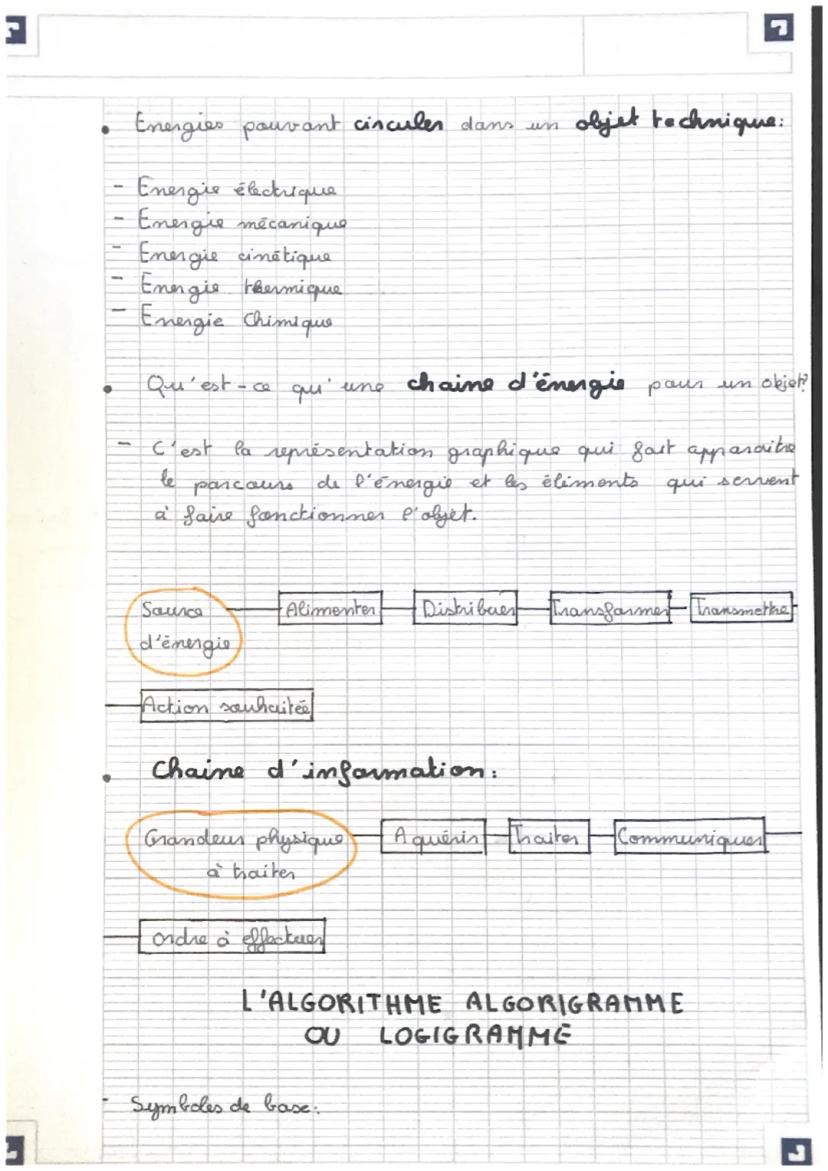 • Energies pouvant circuler dans un objet technique:
- Energie électrique
- Energie mécanique
- Energie cinétique
- Energie thermique
- Energie Chimique
• Qu'est-ce qu'une chaine d'énergie pour un objet?
- C'est la représentation graphique qui fait apparaitre
le parcours de l'énergie et les éléments qui servent
à faire fonctionner l'objet.
Source d'énergie Alimenter Distribuer Transformer Transmettre
Action souhaitée
• Chaine d'information:
Grandeur physique à traiter Aquérir Traiter Communiquer
ordre à effectuer
L'ALGORITHME ALGORIGRAMME
OU LOGIGRAMME
- Symboles de base: